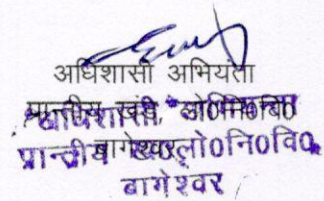 अधिशासी अभियंता
प्रान्तीय खंड, लो०नि०वि०
बागेश्वर
अधिशासी अभियन्ता
प्रान्तीय ख० लो०नि०वि०
बागेश्वर